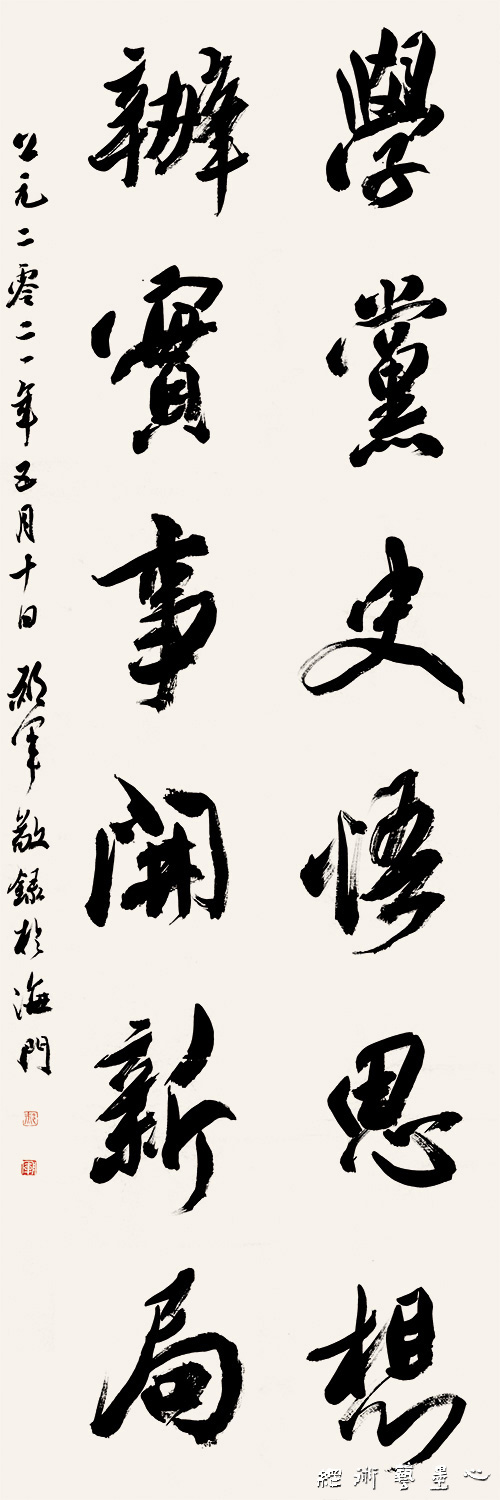 學黨史悟思想
辦實事開新局
公元二零二一年五月十日 顧軍敬錄於海門
心畫藝術館